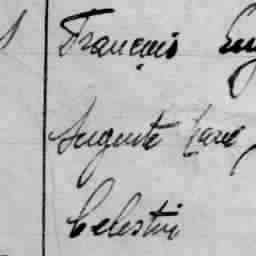 François Eug
Auguste
Célestin